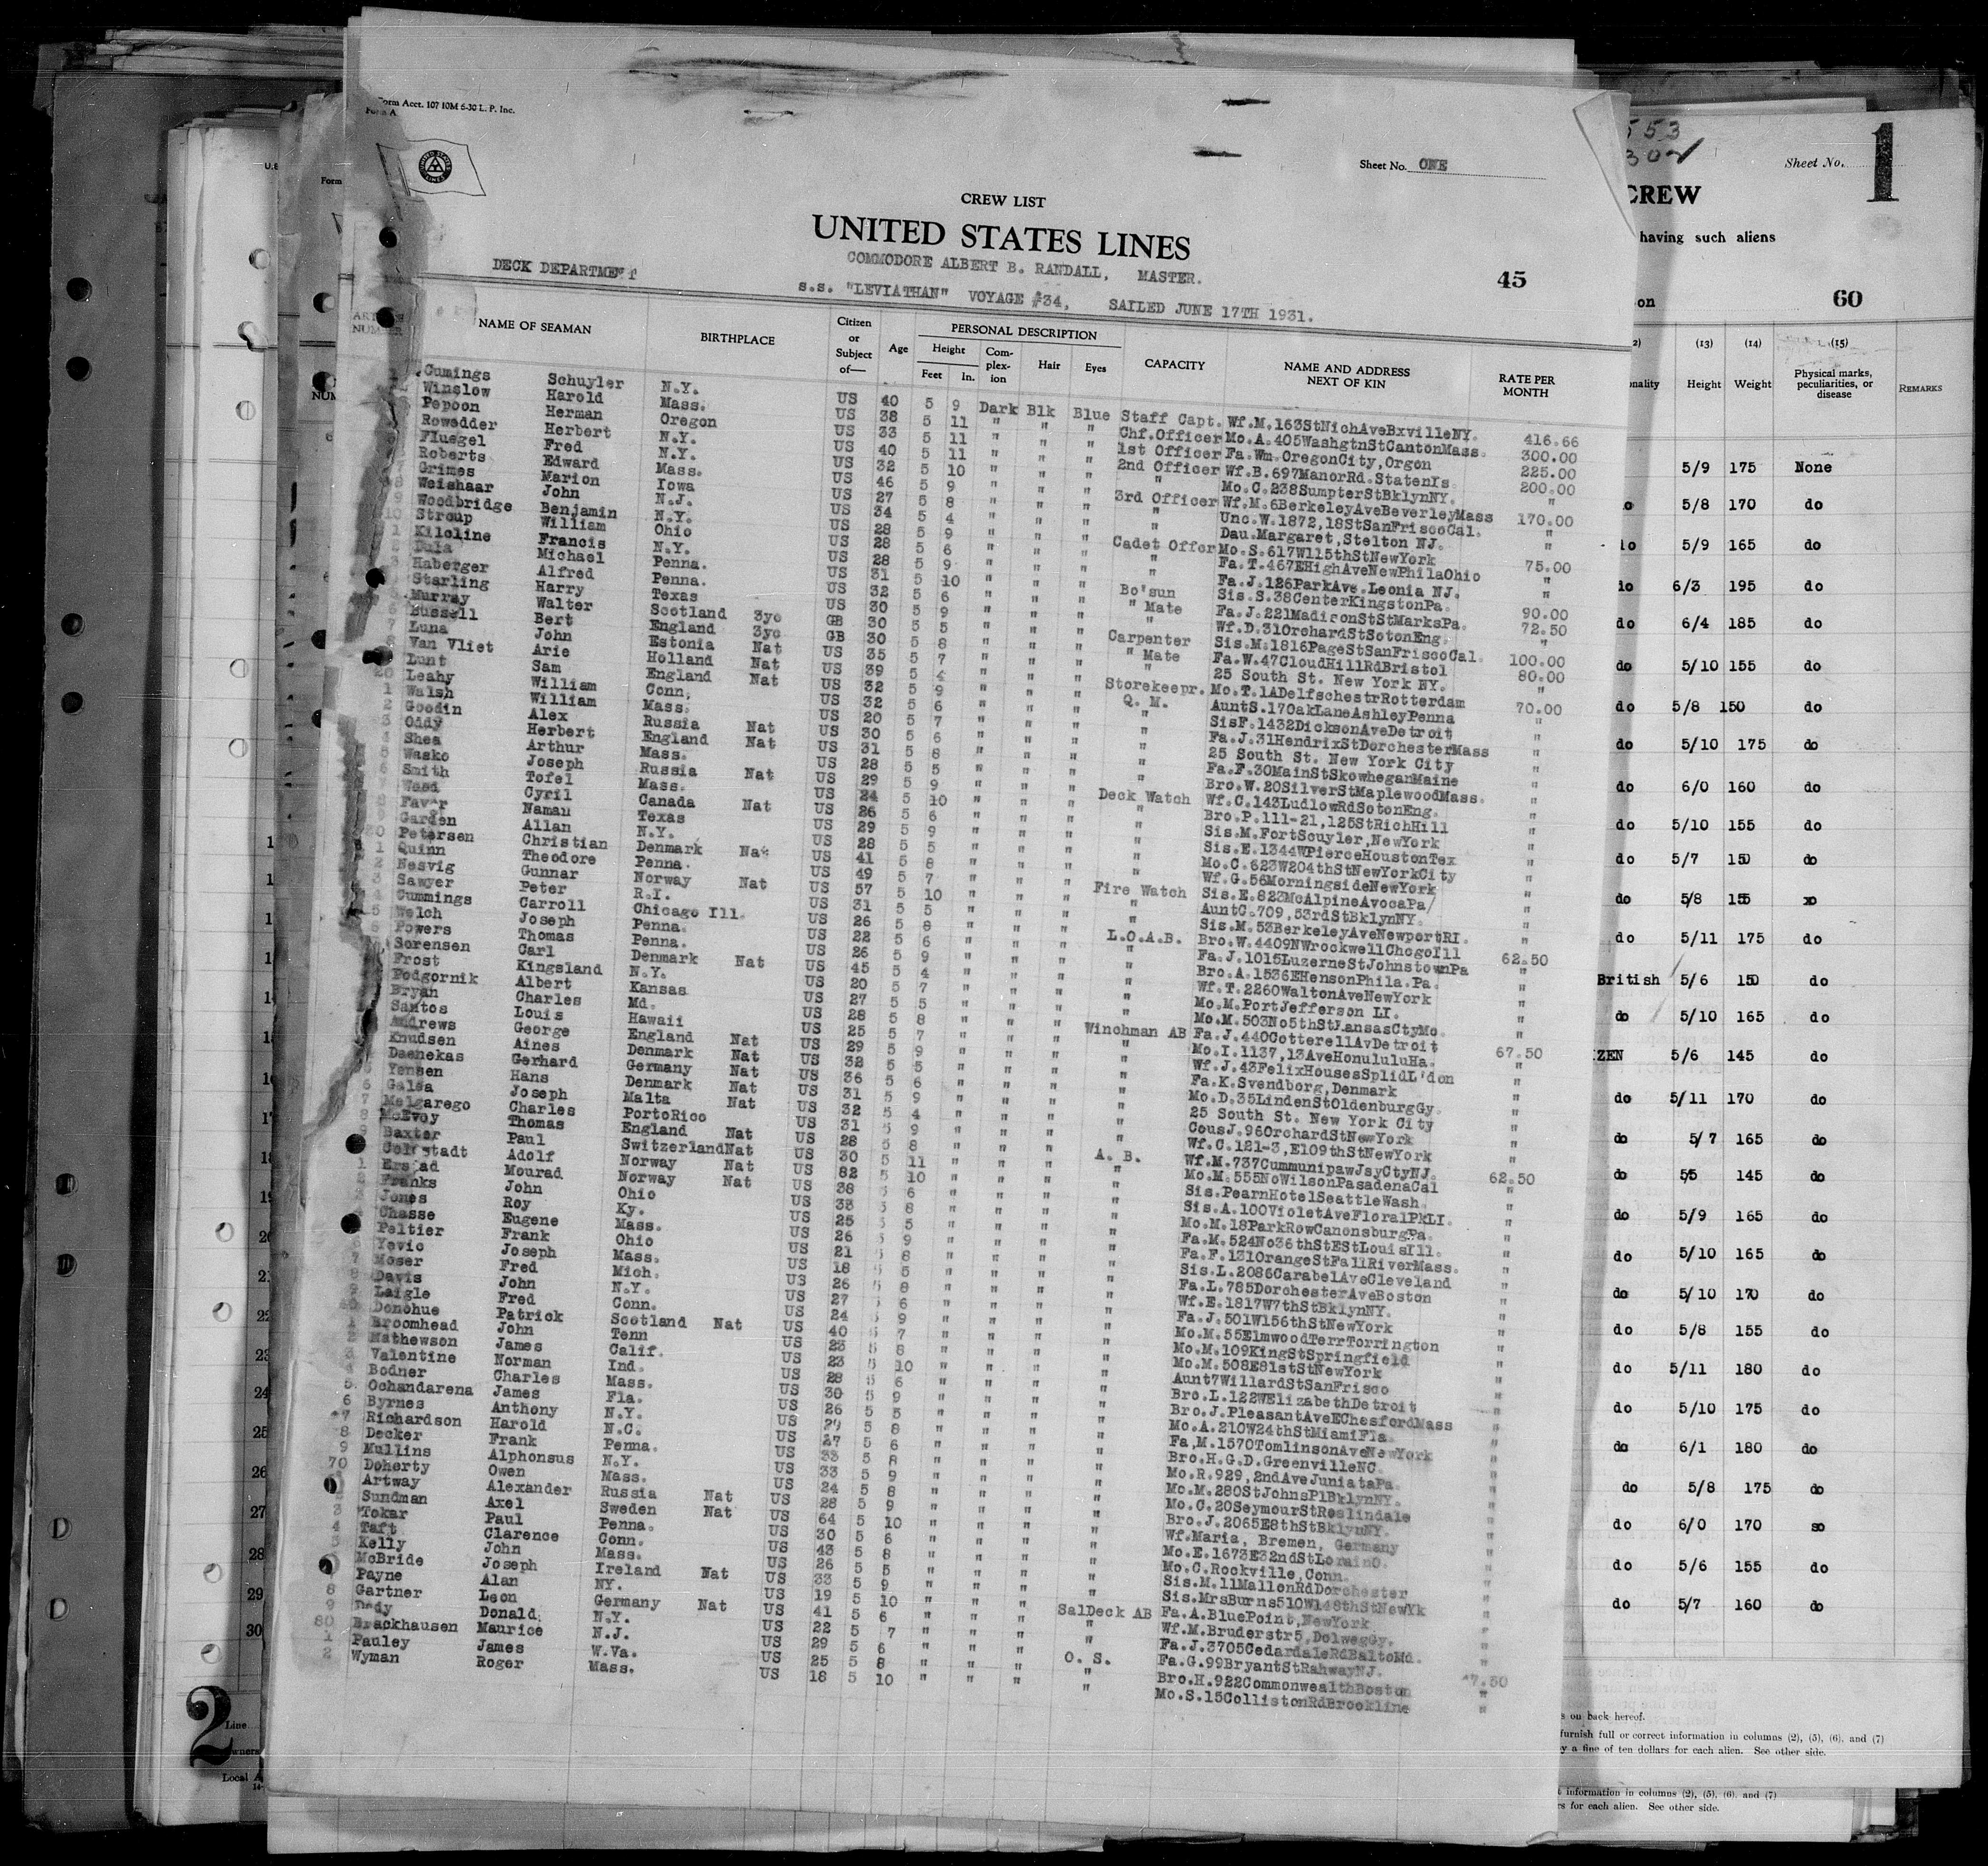 Form Acct. 107 10M 6-30 L. P. Inc.
Form A
UNITED STATES LINES
Sheet No. ONE
CREW LIST
UNITED STATES LINES
COMMODORE ALBERT B. RANDALL, MASTER.
DECK DEPARTMENT
45
s.s. "LEVIATHAN" VOYAGE #34, SAILED JUNE 17TH 1931.
NAME OF SEAMAN BIRTHPLACE Citizen or Subject of— Age PERSONAL DESCRIPTION Height Feet In. Complexion Hair Eyes CAPACITY NAME AND ADDRESS NEXT OF KIN RATE PER MONTH
Cumings Schuyler N.Y. US 40 5 9 Dark Blk Blue Staff Capt. Wf.M.163StNichAveBxvilleNY. 416.66
Winslow Harold Mass. US 38 5 11 " " " Chf.Officer Mo.A.405WashgtnStCantonMass. 300.00
Pepoon Herman Oregon US 33 5 11 " " " 1st Officer Fa.Wm.OregonCity,Orgon 225.00
Rowedder Herbert N.Y. US 40 5 11 " " " 2nd Officer Wf.B.697ManorRd.StatenIs. 200.00
Fluegel Fred N.Y. US 32 5 10 " " " " Mo.C.238SumpterStBklynNY. "
Roberts Edward Mass. US 46 5 9 " " " 3rd Officer Wf.M.6BerkeleyAveBeverleyMass 170.00
Grimes Marion Iowa US 27 5 8 " " " " Unc.W.1872,18StSanFriscoCal. "
Weishaar John N.J. US 34 5 4 " " " " Dau.Margaret,Stelton NJ. "
9 Woodbridge Benjamin N.Y. US 28 5 9 " " " Cadet Offcr Mo.S.617W115thStNewYork 75.00
10 Stroup William Ohio US 28 5 6 " " " " Fa.T.467EHighAveNewPhilaOhio "
1 Kilcline Francis N.Y. US 28 5 9 " " " " Fa.J.126ParkAve.Leonia NJ. "
2 Dula Michael Penna. US 31 5 10 " " " Bo'sun Sis.S.38CenterKingstonPa. 90.00
3 Haberger Alfred Penna. US 32 5 6 " " " " Mate Fa.J.221MadisonStStMarksPa. 72.50
Starling Harry Texas US 30 5 9 " " " " Wf.D.31OrchardStSotonEng. "
Murray Walter Scotland 3yc GB 30 5 5 " " " Carpenter Sis.M.1816PageStSanFriscoCal. 100.00
6 Russell Bert England 3yc GB 30 5 8 " " " " Mate Fa.W.47CloudHillRdBristol 80.00
7 Luna John Estonia Nat US 35 5 7 " " " " 25 South St. New York NY. "
8 Van Vliet Arie Holland Nat US 39 5 4 " " " Storekeepr. Mo.T.1ADelfschestrRotterdam 70.00
Lunt Sam England Nat US 32 5 9 " " " Q. M. AuntS.17OakLaneAshleyPenna "
20 Leahy William Conn. US 32 5 6 " " " " SisF.1432DicksonAveDetroit "
1 Walsh William Mass. US 20 5 7 " " " " Fa.J.31HendrixStDorchesterMass "
2 Goodin Alex Russia Nat US 30 5 6 " " " " 25 South St. New York City "
3 Oddy Herbert England Nat US 31 5 8 " " " " Fa.F.30MainStSkowheganMaine "
4 Shea Arthur Mass. US 28 5 5 " " " " Bro.W.20SilverStMaplewoodMass. "
5 Wasko Joseph Russia Nat US 29 5 9 " " " Deck Watch Wf.C.143LudlowRdSotonEng. "
6 Smith Tofel Mass. US 24 5 10 " " " " Bro.P.111-21,125StRichHill "
7 Weed Cyril Canada Nat US 26 5 6 " " " " Sis.M.FortScuyler,NewYork "
8 Favor Naman Texas US 29 5 9 " " " " Sis.E.1344WPierceHoustonTex "
9 Garden Allan N.Y. US 28 5 5 " " " " Mo.C.623W204thStNewYorkCity "
30 Petersen Christian Denmark Nat US 41 5 8 " " " " Wf.G.56MorningsideNewYork "
1 Quinn Theodore Penna. US 49 5 7 " " " Fire Watch Sis.E.823McAlpineAvocaPa/ "
2 Nesvig Gunnar Norway Nat US 57 5 10 " " " " AuntC.709,53rdStBklynNY. "
3 Sawyer Peter R.I. US 31 5 5 " " " " Sis.M.53BerkeleyAveNewportRI. "
4 Cummings Carroll Chicago Ill. US 26 5 8 " " " L.O.A.B. Bro.W.4409NWrockwellChcgoIll 62.50
5 Welch Joseph Penna. US 22 5 6 " " " " Fa.J.1015LuzerneStJohnstownPa "
6 Powers Thomas Penna. US 26 5 9 " " " " Bro.A.1536EHensonPhila.Pa. "
Sorensen Carl Denmark Nat US 45 5 4 " " " " Wf.T.2260WaltonAveNewYork "
Frost Kingsland N.Y. US 20 5 7 " " " " Mo.M.PortJefferson LI. "
Podgornik Albert Kansas US 27 5 5 " " " " Mo.M.503No5thStKansasCtyMo. "
Bryan Charles Md. US 28 5 8 " " " Winchman AB Fa.J.440CotterellAvDetroit 67.50
Santos Louis Hawaii US 25 5 7 " " " " Mo.I.1137,13AveHonululuHa. "
Andrews George England Nat US 29 5 9 " " " " Wf.J.43FelixHousesSplidL'don "
Knudsen Aines Denmark Nat US 32 5 5 " " " " Fa.K.Svendborg,Denmark "
Daenekas Gerhard Germany Nat US 36 5 6 " " " " Mo.D.35LindenStOldenburgGy. "
5 Yensen Hans Denmark Nat US 31 5 9 " " " " 25 South St. New York City "
6 Galea Joseph Malta Nat US 32 5 4 " " " " CousJ.96OrchardStNewYork "
7 Melgarego Charles PortoRico US 31 5 9 " " " " Wf.C.121-3,E109thStNewYork "
8 McEvoy Thomas England Nat US 28 5 8 " " " A. B. Wf.M.737CummunipawJsyCtyNJ. 62.50
9 Baxter Paul SwitzerlandNat US 30 5 11 " " " " Mo.M.555NoWilsonPasadenaCal "
Adolf Norway Nat US 82 5 10 " " " " Sis.PearnHotelSeattleWash. "
1 Erstad Mourad Norway Nat US 38 5 6 " " " " Sis.A.100VioletAveFloralPkLI. "
2 Franks John Ohio US 33 5 8 " " " " Mo.M.18ParkRowCanonsburgPa. "
Jones Roy Ky. US 25 5 5 " " " " Fa.M.524No36thStEStLouisIll. "
Chasse Eugene Mass. US 26 5 9 " " " " Fa.F.131OrangeStFallRiverMass. "
Peltier Frank Ohio US 21 5 8 " " " " Sis.L.2086CarabelAveCleveland "
6 Yevic Joseph Mass. US 18 5 5 " " " " Fa.L.785DorchesterAveBoston "
7 Moser Fred Mich. US 26 5 8 " " " " Wf.E.1817W7thStBklynNY. "
8 Davis John N.Y. US 27 5 6 " " " " Fa.J.501W156thStNewYork "
9 Laigle Fred Conn. US 24 5 9 " " " " Mo.M.55ElmwoodTerrTorrington "
60 Donohue Patrick Scotland Nat US 40 5 7 " " " " Mo.M.109KingStSpringfield "
1 Broomhead John Tenn US 23 5 8 " " " " Mo.M.508E81stStNewYork "
2 Mathewson James Calif. US 23 5 10 " " " " Aunt7WillardStSanFrisco "
3 Valentine Norman Ind. US 28 5 6 " " " " Bro.L.122WElizabethDetroit "
4 Bodner Charles Mass. US 30 5 9 " " " " Bro.J.PleasantAveEChesfordMass "
5 Ochandarena James Fla. US 26 5 5 " " " " Mo.A.210W24thStMiamiFla. "
6 Byrnes Anthony N.Y. US 29 5 8 " " " " Fa,M.1570TomlinsonAveNewYork "
7 Richardson Harold N.C. US 27 5 6 " " " " Bro.H.G.D.GreenvilleNC. "
8 Decker Frank Penna. US 33 5 8 " " " " Mo.R.929,2ndAveJuniataPa. "
9 Mullins Alphonsus N.Y. US 33 5 9 " " " " Mo.M.280StJohnsPlBklynNY. "
70 Doherty Owen Mass. US 24 5 8 " " " " Mo.C.20SeymourStRoslindale "
Artway Alexander Russia Nat US 28 5 9 " " " " Bro.J.2065E8thStBklynNY. "
Sundman Axel Sweden Nat US 64 5 10 " " " " Wf.Maria, Bremen, Germany "
3 Tokar Paul Penna. US 30 5 6 " " " " Mo.E.1673E32ndStLorainO. "
4 Taft Clarence Conn. US 43 5 8 " " " " Mo.C.Rockville,Conn. "
5 Kelly John Mass. US 26 5 5 " " " " Sis.M.11MallonRdDorchester "
McBride Joseph Ireland Nat US 33 5 9 " " " " Sis.MrsBurns510W148thStNewYk "
Payne Alan NY. US 19 5 10 " " " SalDeck AB Fa.A.BluePoint,NewYork "
8 Gartner Leon Germany Nat US 41 5 6 " " " " Wf.M.Bruderstr5,DolwegGy. "
9 Dedy Donald N.Y. US 22 5 7 " " " " Fa.J.3705CedardaleRdBaltoMd. "
80 Brackhausen Maurice N.J. US 29 5 6 " " " O. S. Fa.G.99BryantStRahwayNJ. 47.50
1 Pauley James W.Va. US 25 5 8 " " " " Bro.H.922CommonwealthBoston "
2 Wyman Roger Mass. US 18 5 10 " " " " Mo.S.15CollistonRdBrookline "
553
302
Sheet No. 1
CREW
having such aliens
60
(13) (14) (15)
Height Weight Physical marks, peculiarities, or disease REMARKS
5/9 175 None
5/8 170 do
5/9 165 do
do 6/3 195 do
do 6/4 185 do
do 5/10 155 do
do 5/8 150 do
do 5/10 175 do
do 6/0 160 do
do 5/10 155 do
do 5/7 150 do
do 5/8 155
do 5/11 175 do
British 5/6 150 do
do 5/10 165 do
IZEN 5/6 145 do
do 5/11 170 do
5/7 165 do
do 5/5 145 do
do 5/9 165 do
do 5/10 165 do
do 5/10 170 do
do 5/8 155 do
do 5/11 180 do
do 5/10 175 do
do 6/1 180 do
do 5/8 175 do
do 6/0 170 so
do 5/6 155 do
do 5/7 160 do
s on back hereof.
furnish full or correct information in columns (2), (5), (6), and (7)
y a fine of ten dollars for each alien. See other side.
information in columns (2), (5), (6), and (7)
rs for each alien. See other side.
18
19
20
21
22
23
24
25
26
27
28
29
30
2
Line
Owners
Local A